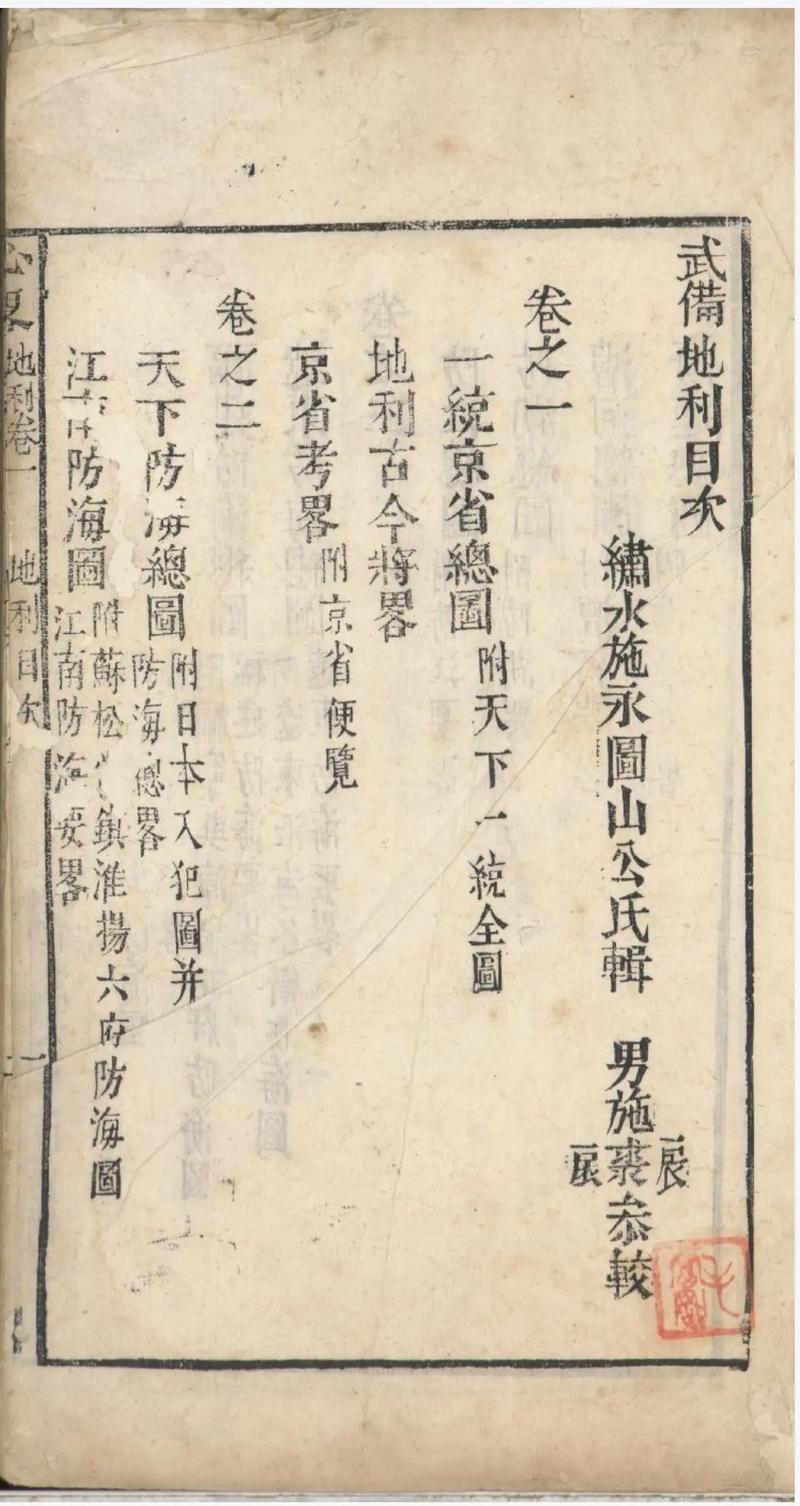 武備地利目次
繡水施永圖山公氏輯　男施
裘叅較
卷之一
一統京省總圖附天下一統全圖
地利古今將畧
京省考畧附京省便覽
卷之二
天下防海總圖附日本入犯圖并
防海總畧
江南防海圖附蘇松鎮淮揚六府防海圖
江南防海要畧
地利卷一　地利目次